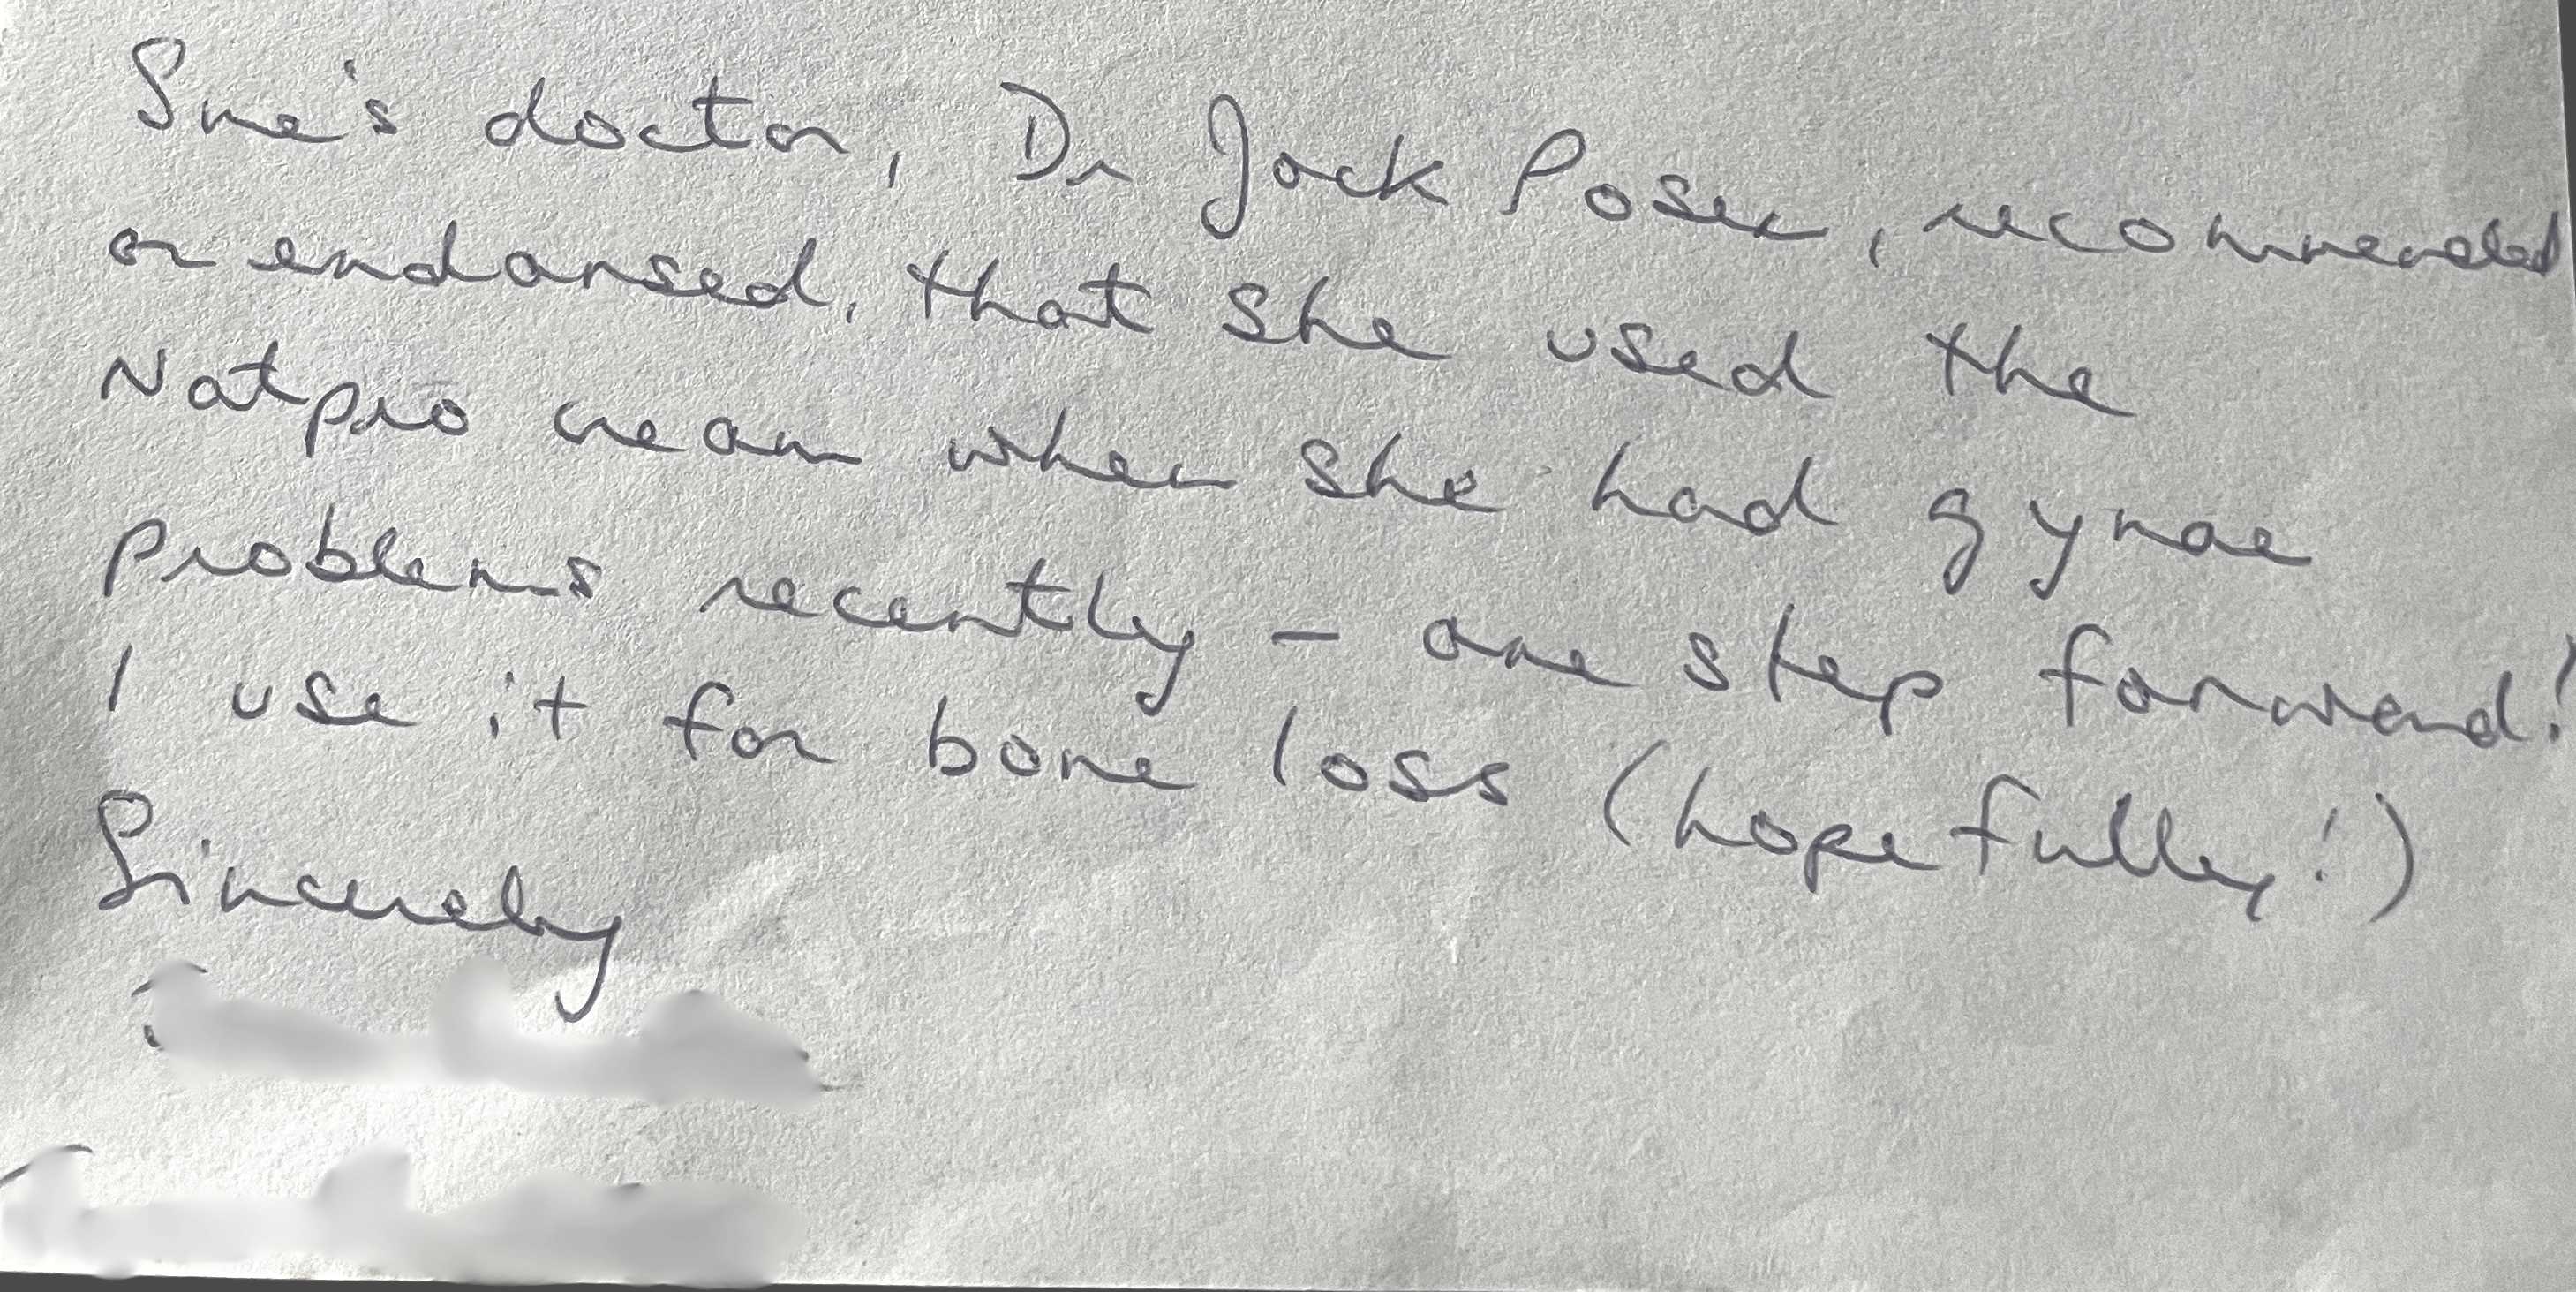 Sue's doctor, Dr Jack Posen, recommended
or endorsed, that she used the
Natpro cream when she had gynae
problems recently – one step forward!
I use it for bone loss (hopefully!)
Sincerely